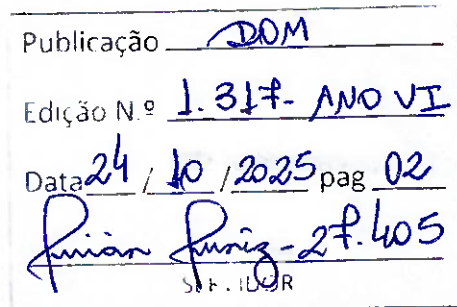 Publicação DOM
Edição N.º 1.317- ANO VI
Data 24 / 10 / 2025 pag 02
- 27.405
SERVIDOR